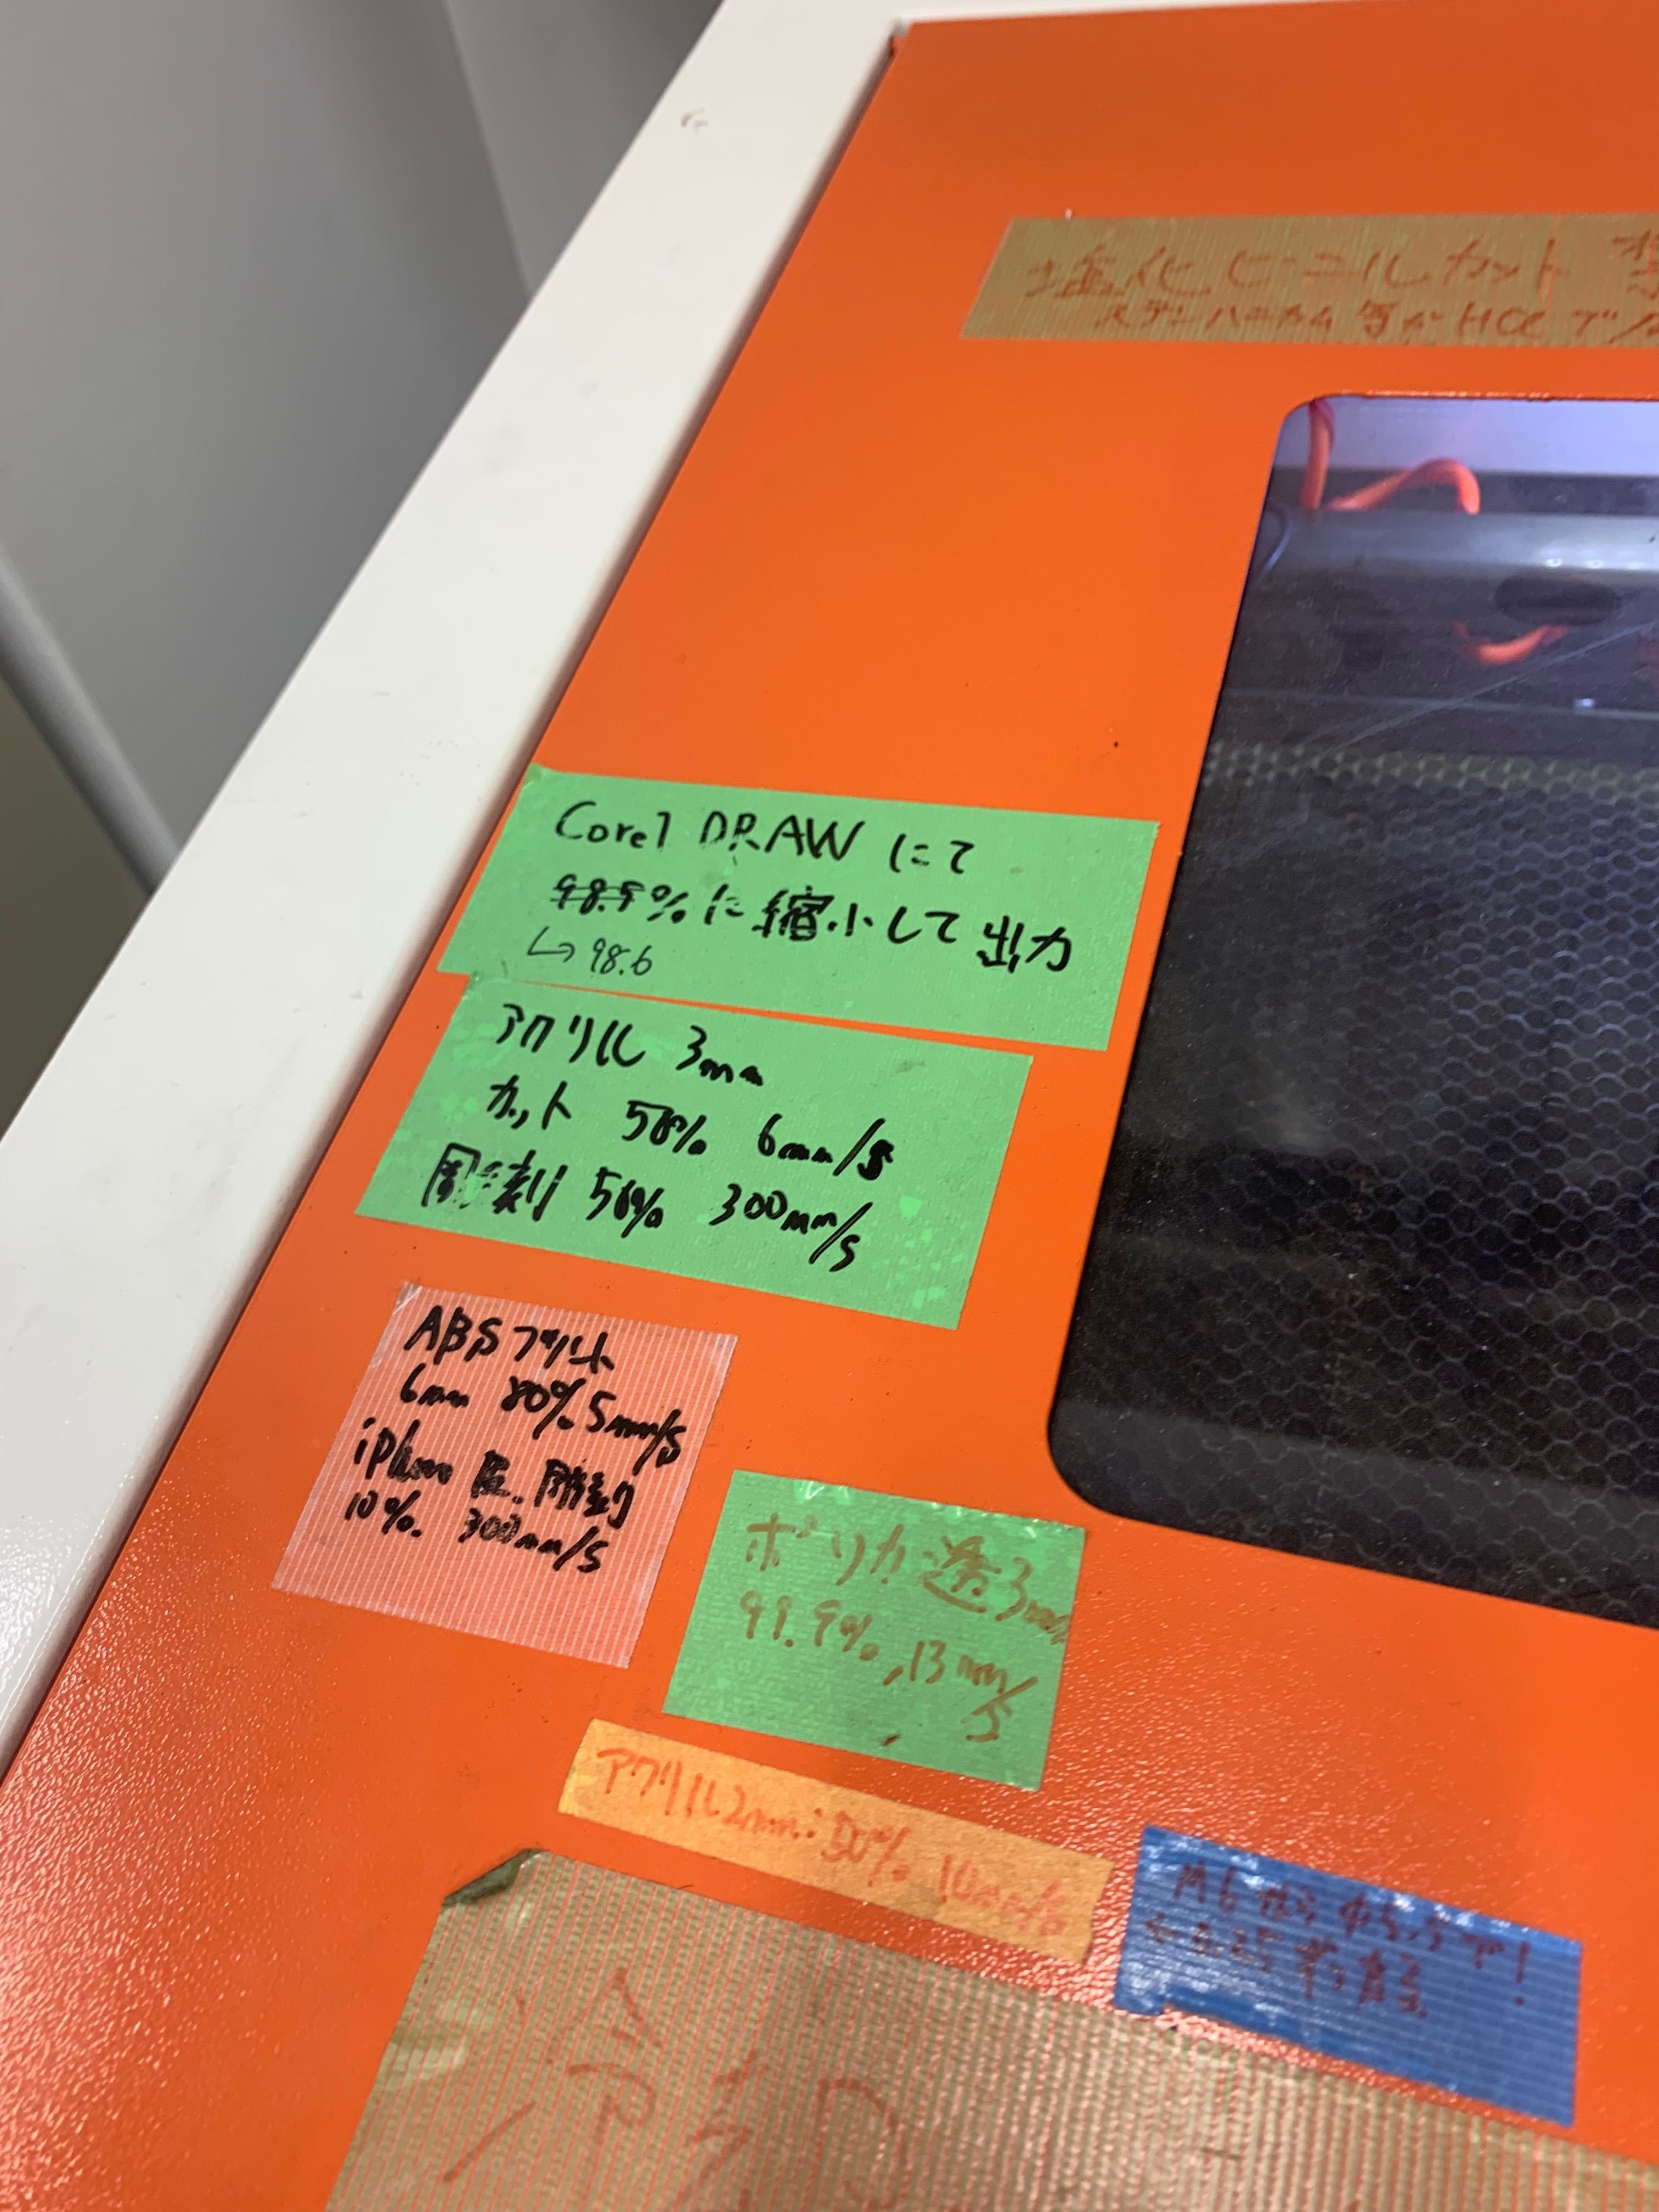 塩化ビニルカット
HClで
Corel DRAW にて
98.5%に縮小して出力
↳ 98.6
アクリル 3mm
カット 50% 6mm/s
彫刻 50% 300mm/s
ABSプリント
6mm 80% 5mm/s
iPhone 彫刻
10%. 300mm/s
ポリカ透3mm
99.9%, 13mm/s
アクリル2mm:50% 10mm/s
M6なら φ5.5で!